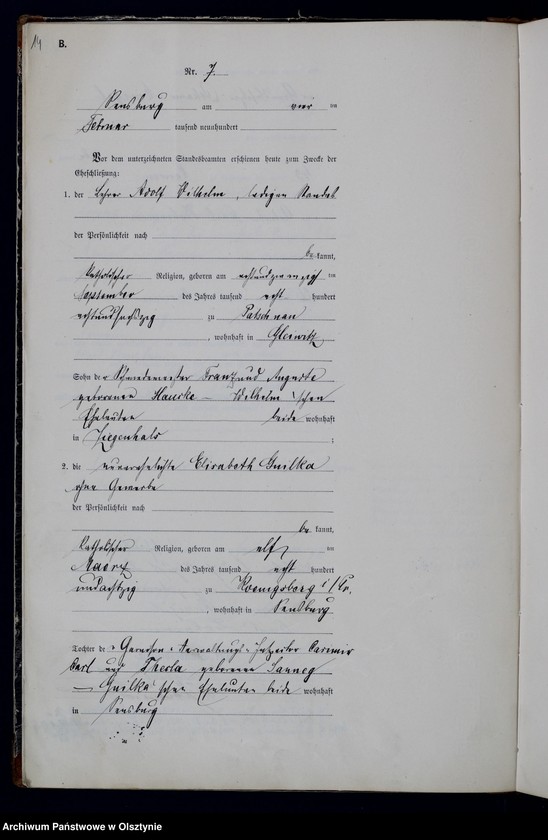 14
B.
Nr. 7.
Sensburg am vier ten
Februar tausend neunhundert
Vor dem unterzeichneten Standesbeamten erschienen heute zum Zwecke der
Eheschließung:
1. der Lehrer Adolf Wilhelm, ledigen Standes
der Persönlichkeit nach
be kannt,
katholischer Religion, geboren am achtundzwanzigsten
September des Jahres tausend acht hundert
achtundsechszig zu Patschkau
, wohnhaft in Gleiwitz
Sohn der Schmiedemeister Franz und Auguste
geborenen Hauske - Wilhelm'schen
Eheleuten beide wohnhaft
in Ziegenhals ;
2. die unverehelichte Elisabeth Gnilka
ohne Gewerbe
der Persönlichkeit nach
be kannt,
katholischer Religion, geboren am elf ten
Maerz des Jahres tausend acht hundert
undachtzig zu Koenigsberg i/Pr.
, wohnhaft in Sensburg
Tochter der Garnison-Verwaltungs-Inspektor Casimir
Carl und Thecla geborenen
- Gnilka'schen Eheleuten beide wohnhaft
in Sensburg
Archiwum Państwowe w Olsztynie